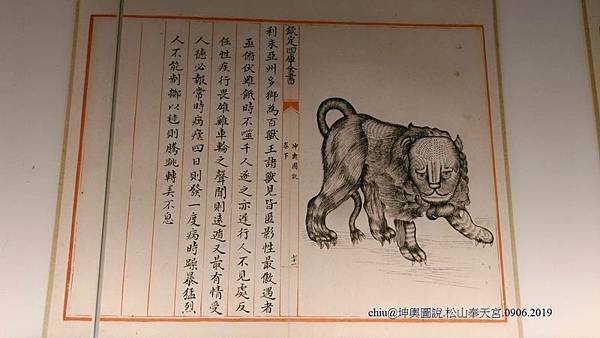 欽定四庫全書
坤輿圖說
卷下
利未亞州多獅為百獸王諸獸見皆匿影性最傲遇者
亟俯伏雖餓時不噬千人逐之亦遲行人不見處反
任性疾行畏雄雞車輪之聲聞則遠遁又最有情受
人德必報常時病瘧四日則發一度病時躁暴猛烈
人不能制擲以毬則騰跳轉弄不息
chiu@坤輿圖說.松山奉天宮.0906.2019